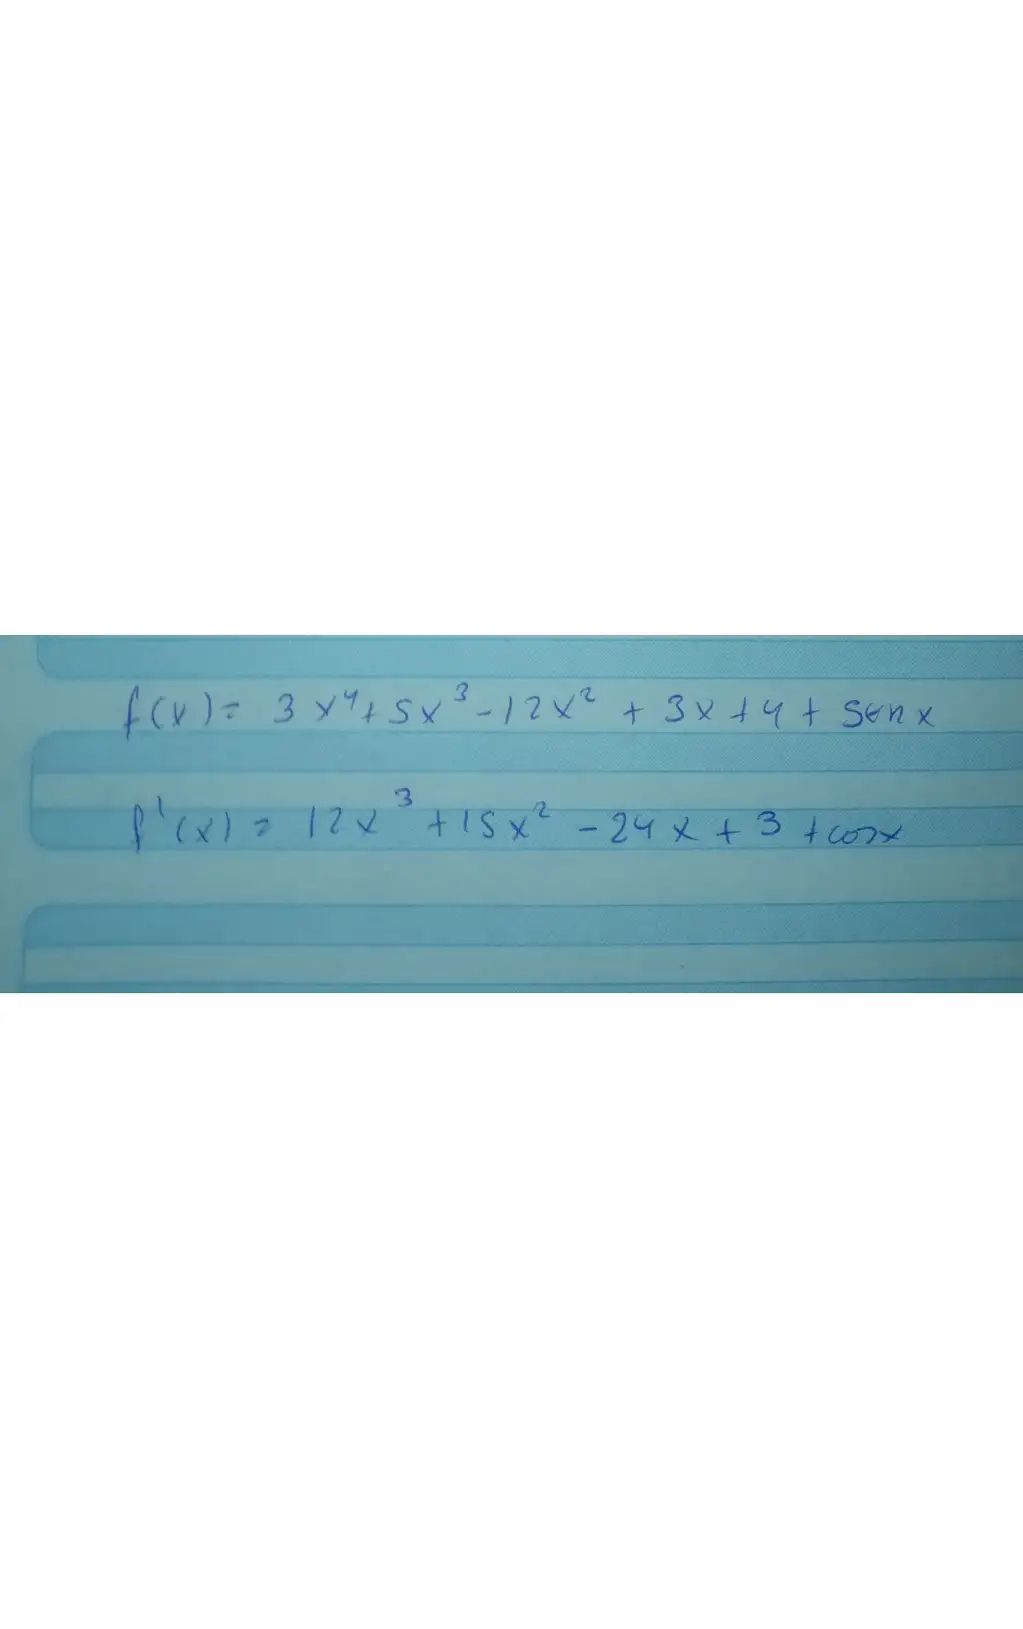 f(x) = 3x⁴ + 5x³ - 12x² + 3x + 4 + sen x
f'(x) = 12x³ + 15x² - 24x + 3 + cosx